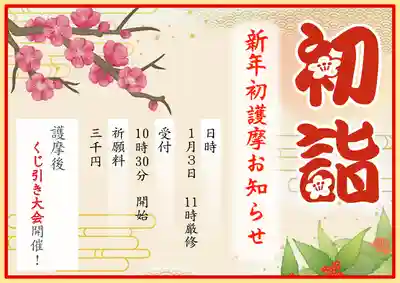 初詣
新年初護摩お知らせ
日時
1月3日 11時厳修
受付
10時30分 開始
祈願料
三千円
護摩後
くじ引き大会開催！